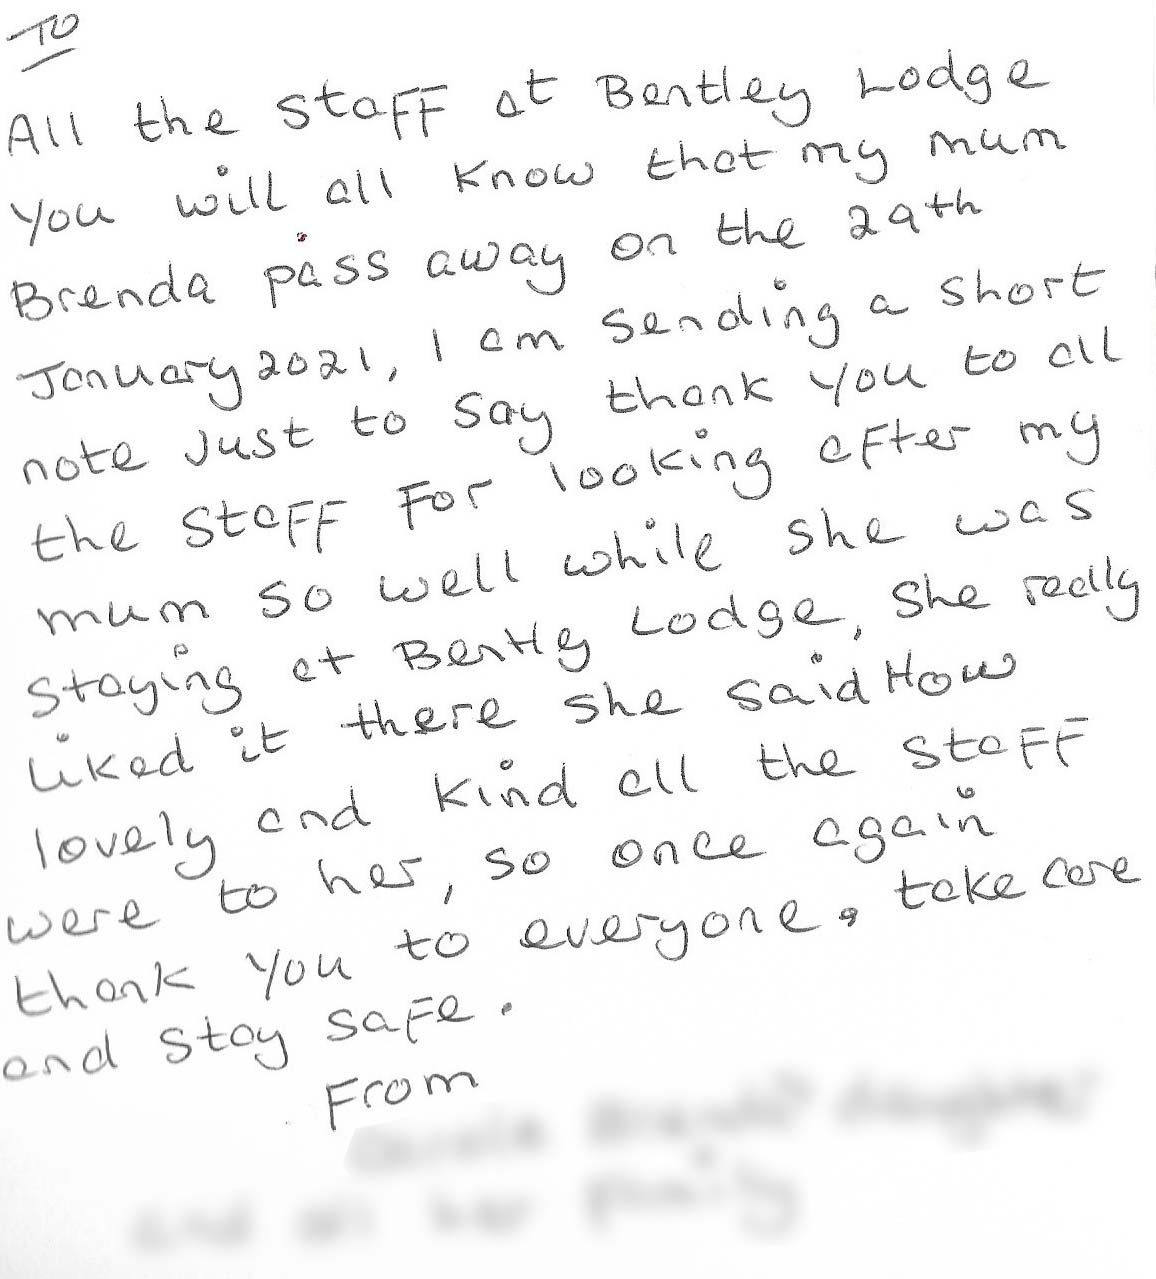 TO
All the staFF at Bentley Lodge
you will all know that my mum
Brenda pass away on the 29th
January 2021, I am sending a short
note Just to say thank you to all
the staFF For looking aFter my
mum so well while she was
staying at Bently Lodge, she really
liked it there she said How
lovely and kind all the staFF
were to her, so once again
thank you to everyone. take care
and stay saFe.
From